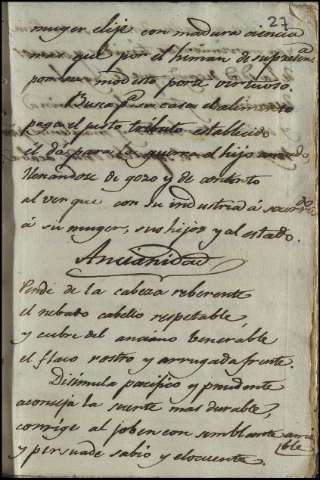 27
muger elije con madura ciencia
mas que por el himan de su presencia
por su modesto porte virtuoso.
Busca para su casa el alimento
paga el justo tributo establecido
él dá para la guerra el hijo amado,
llenandose de gozo y de contento
al ver que con su industria á socorrido
á su muger, sus hijos y al estado.
Ancianidad
Pende de la cabeza reberente
el nebado cabello respetable,
y cubre del anciano benerable
el flaco rostro y arrugada frente.
Disimula pacifico y prudente
aconseja la suerte mas durable,
corrige al joben con semblante amable
y persuade sabio y elocuente.